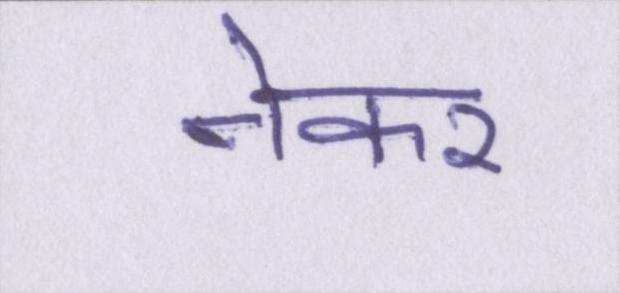 नेकर